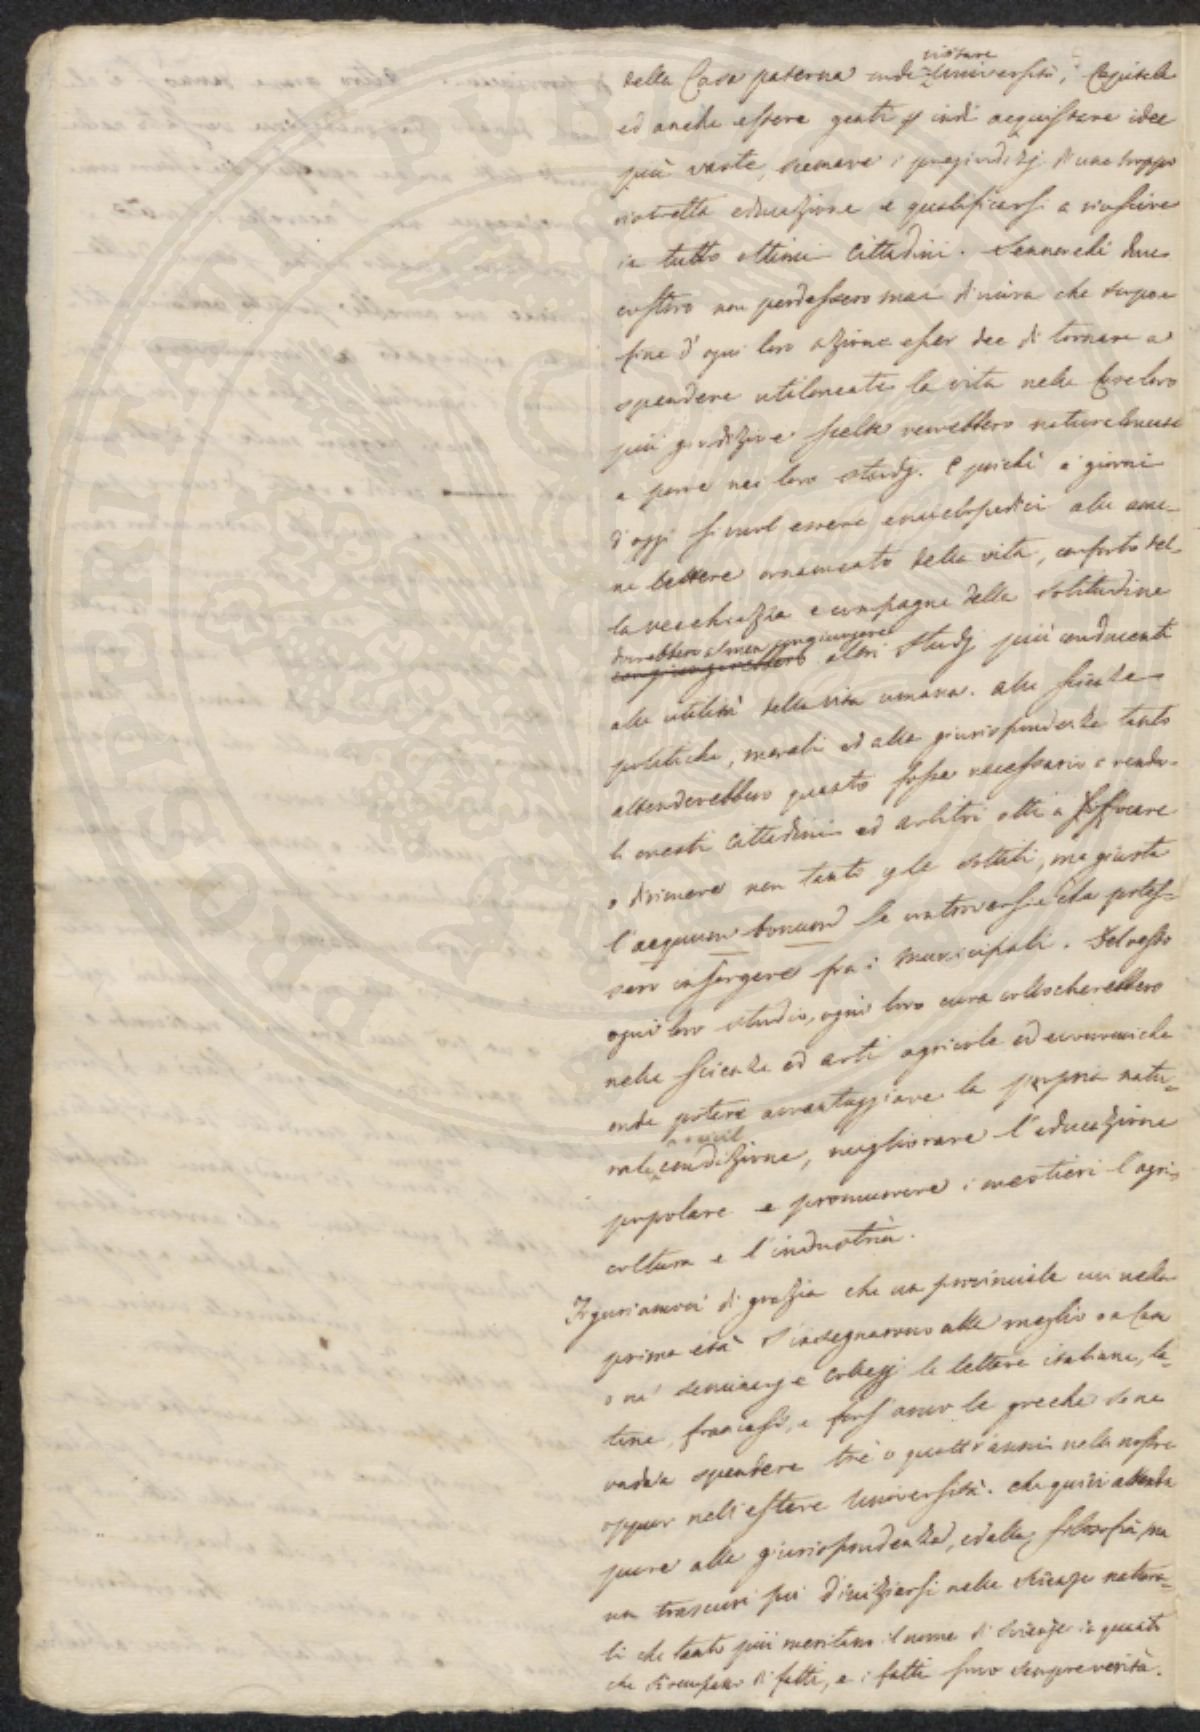 visitare
della Casa paterna onde Università, Capitali
ed anche estere genti p indi acquistare idee
più vaste, scemare i pregiudizj di una troppo
ristretta educazione e qualificarsi a riuscire
in tutto ottimi Cittadini. Sennonchè dove
costoro non perdessero mai di mira che scopo e
fine d'ogni loro azione esser dee di tornare a
spendere utilmente la vita nelle Case loro
più giudizio e scelta verrebbero naturalmente
a porre nei loro studj. E poichè a' giorni
d'oggi si vuol essere enciclopedici alle ame-
ne lettere ornamento della vita, conforto del-
la vecchiezza e compagne della solitudine
dovrebbero almen congiungere
congiungerebbero altri studj più conducenti
alle utilità della vita umana. Alle scienze
politiche, morali ed alla giurisprudenza tanto
attenderebbero quanto fosse necessario a render-
li onesti Cittadini ed arbitri atti a soffocare
o dirimere non tanto p le sottili, ma giusta
l'aequum bonum le controversie che potes-
sero insorgere fra i Municipali. Del resto
ogni loro studio, ogni loro cura collocherebbero
nelle scienze ed arti agricole ed economiche
onde potere avvantaggiare la propria natu-
e civil
rale condizione, migliorare l'educazione
popolare e promuovere i mestieri l'agri-
coltura e l'industria.
Figuriamoci di grazia che un provinciale cui nella
prima età s'insegnarono alla meglio o a Casa
o ne' seminarj e Collegj le lettere italiane, la-
tine, francesi, e fors'anco le greche se ne
vada a spendere tre o quattr'anni nelle nostre
oppur nell'estere Università. Che quivi attenda
pure alla giurisprudenza, ed alla filosofia, ma
non trascuri poi d'iniziarsi nelle scienze natura-
li che tanto più meritano il nome di scienze in quanto
che si occupano di fatti, e i fatti sono sempre verità.